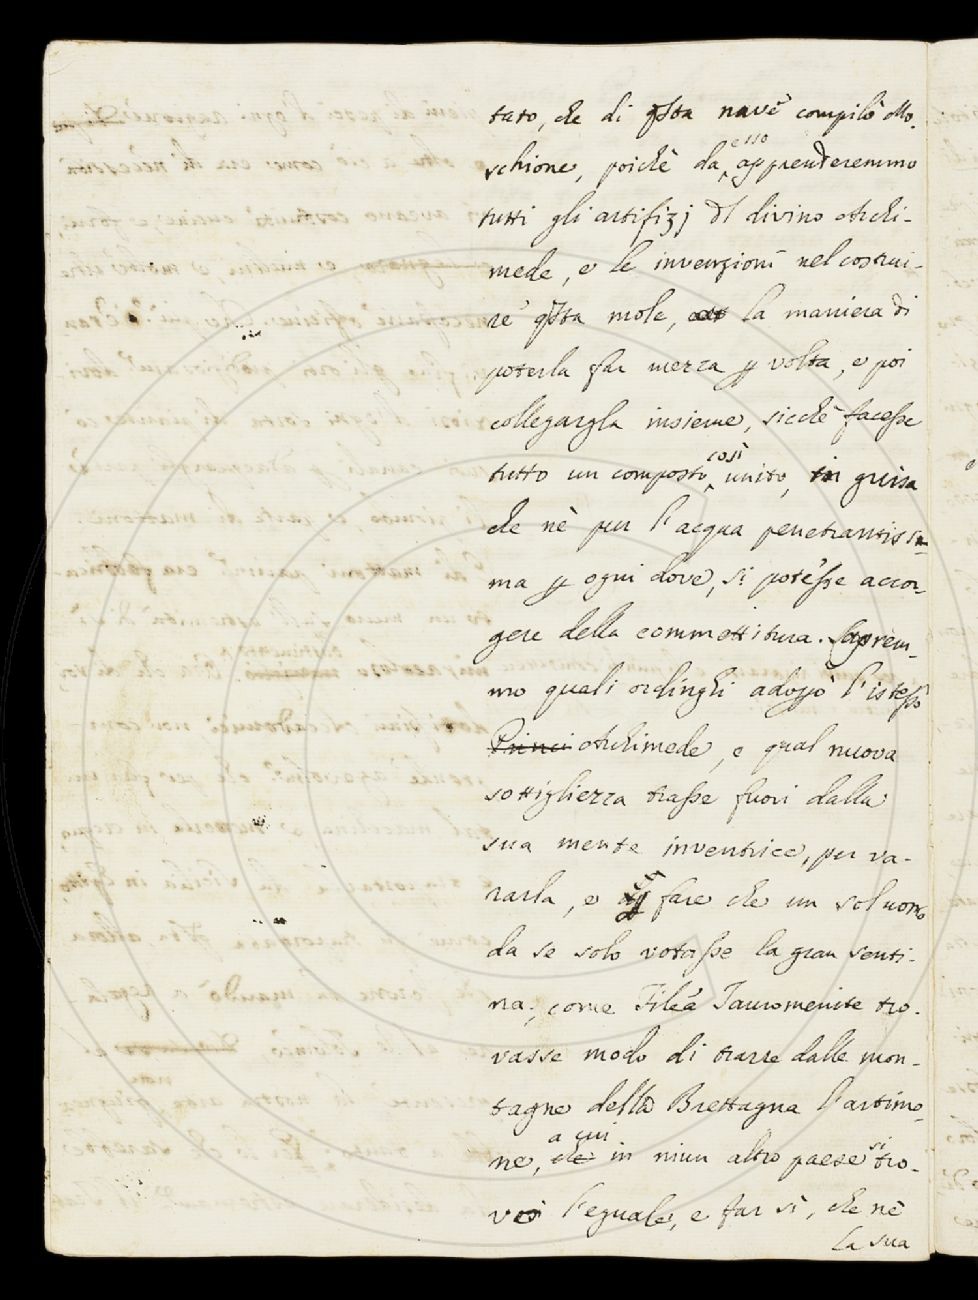 tato, che di qsta nave compilò Mo-
schione, poichè da esso apprenderemmo
tutti gli artifizj dl divino Archi-
mede, e le invenzioni nel costrui-
re qsta mole, la maniera di
poterla far mezza p volta, e poi
collegargla insieme, sicchè facesse
tutto un composto così unito, in guisa
che nè pur l'acqua penetrantissi-
ma p ogni dove, si potesse accor-
gere della commettitura. Saprem-
mo quali ordinghi adoprò l'istesso
Princi Archimede, e qual nuova
sottigliezza trasse fuori dalla
sua mente inventrice, per va-
rarla, e fare che un sol uomo
da se solo votasse la gran senti-
na; come Filéa Tauromenite tro-
vasse modo di trarre dalle mon-
tagne della Brettagna l'artimo-
ne, che a cui in niun altro paese si tro-
vò l'eguale, e far sì, che nè
la sua